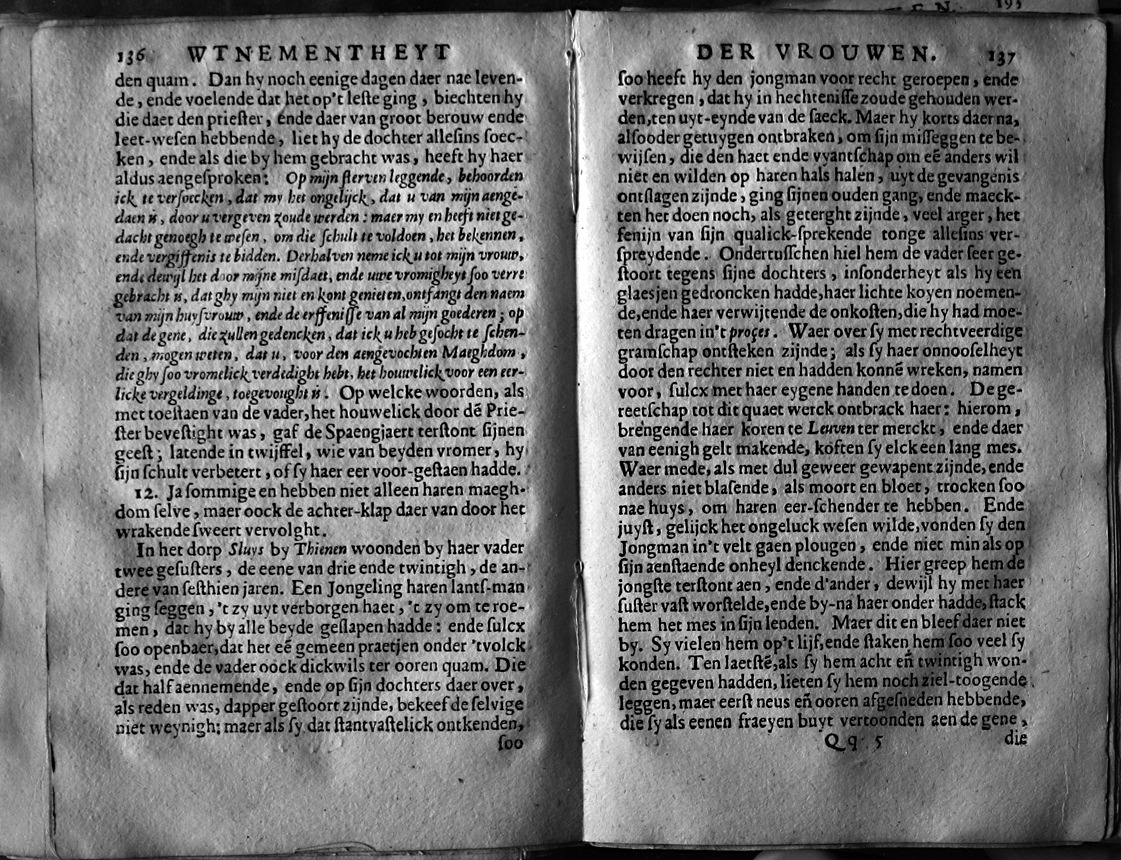 136 WTNEMENTHEYT
den quam. Dan hy noch eenige dagen daer nae leven-
de, ende voelende dat het op't leste ging, biechten hy
die daet den priester, ende daer van groot berouw ende
leet-wesen hebbende, liet hy de dochter allesins soec-
ken, ende als die by hem gebracht was, heeft hy haer
aldus aengesproken: Op mijn sterven leggende, behoorden
ick te versoecken, dat my het ongelijck, dat u van mijn aenge-
daen is, door u vergeven zoude werden: maer my en heeft niet ge-
dacht genoegh te wesen, om die schult te voldoen, het bekennen,
ende vergiffenis te bidden. Derhalven neme ick u tot mijn vrouw,
ende dewijl het door mijne misdaet, ende uwe vromigheyt soo verre
gebracht is, dat ghy mijn niet en kont genieten, ontfangt den naem
van mijn huysvrouw, ende de erffenisse van al mijn goederen; op
dat de gene, die zullen gedencken, dat ick u heb gesocht te schen-
den, mogen weten, dat u, voor den aengevochten Maeghdom,
die ghy soo vromelick verdedight hebt, het houwelick voor een eer-
licke vergeldinge, toegevought is. Op welcke woorden, als
met toestaen van de vader, het houwelick door dē Prie-
ster bevestight was, gaf de Spaengjaert terstont sijnen
geest; latende in twijffel, wie van beyden vromer, hy
sijn schult verbetert, of sy haer eer voor-gestaen hadde.
12. Ja sommige en hebben niet alleen haren maegh-
dom selve, maer oock de achter-klap daer van door het
wrakende sweert vervolght.
In het dorp Sluys by Thienen woonden by haer vader
twee gesusters, de eene van drie ende twintigh, de an-
dere van sesthien jaren. Een Jongeling haren lants-man
ging seggen, 't zy uyt verborgen haet, 't zy om te roe-
men, dat hy by alle beyde geslapen hadde: ende sulcx
soo openbaer, dat het eē gemeen praetjen onder 'tvolck
was, ende de vader oock dickwils ter ooren quam. Die
dat half aennemende, ende op sijn dochters daer over,
als reden was, dapper gestoort zijnde, bekeef de selvige
niet weynigh; maer als sy dat stantvastelick ontkenden,
soo
DER VROUWEN. 137
soo heeft hy den jongman voor recht geroepen, ende
verkregen, dat hy in hechtenisse zoude gehouden wer-
den, ten uyt-eynde van de saeck. Maer hy korts daer na,
alsooder getuygen ontbraken, om sijn misseggen te be-
wijsen, die den haet ende vyantschap om eē anders wil
niet en wilden op haren hals halen, uyt de gevangenis
ontslagen zijnde, ging sijnen ouden gang, ende maeck-
ten het doen noch, als geterght zijnde, veel arger, het
fenijn van sijn qualick-sprekende tonge allesins ver-
spreydende. Ondertusschen hiel hem de vader seer ge-
stoort tegens sijne dochters, insonderheyt als hy een
glaesjen gedroncken hadde, haer lichte koyen noemen-
de, ende haer verwijtende de onkosten, die hy had moe-
ten dragen in't proçes. Waer over sy met rechtveerdige
gramschap ontsteken zijnde; als sy haer onnooselheyt
door den rechter niet en hadden konnē wreken, namen
voor, sulcx met haer eygene handen te doen. De ge-
reetschap tot dit quaet werck ontbrack haer: hierom,
brengende haer koren te Leuven ter merckt, ende daer
van eenigh gelt makende, kosten sy elck een lang mes.
Waer mede, als met dul geweer gewapent zijnde, ende
anders niet blasende, als moort en bloet, trocken soo
nae huys, om haren eer-schender te hebben. Ende
juyst, gelijck het ongeluck wesen wilde, vonden sy den
Jongman in't velt gaen plougen, ende niet min als op
sijn aenstaende onheyl denckende. Hier greep hem de
jongste terstont aen, ende d'ander, dewijl hy met haer
suster vast worstelde, ende by-na haer onder hadde, stack
hem het mes in sijn lenden. Maer dit en bleef daer niet
by. Sy vielen hem op't lijf, ende staken hem soo veel sy
konden. Ten laetstē, als sy hem acht eñ twintigh won-
den gegeven hadden, lieten sy hem noch ziel-toogende
leggen, maer eerst neus eñ ooren afgesneden hebbende,
die sy als eenen fraeyen buyt vertoonden aen de gene,
Qq 5 die